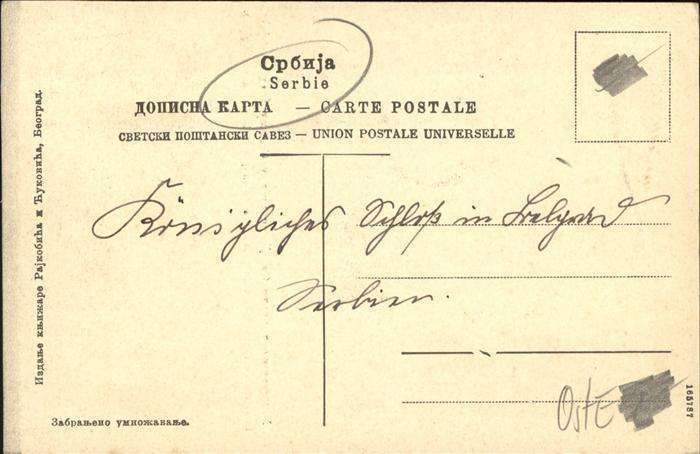 Србија
Serbie
ДОПИСНА КАРТА — CARTE POSTALE
СВЕТСКИ ПОШТАНСКИ САВЕЗ — UNION POSTALE UNIVERSELLE
Königliches Schloß in Belgrad
Serbien.
OstE
Издање књижаре Рајковића и Ђуковића, Београд.
Забрањено умножавање.
165787